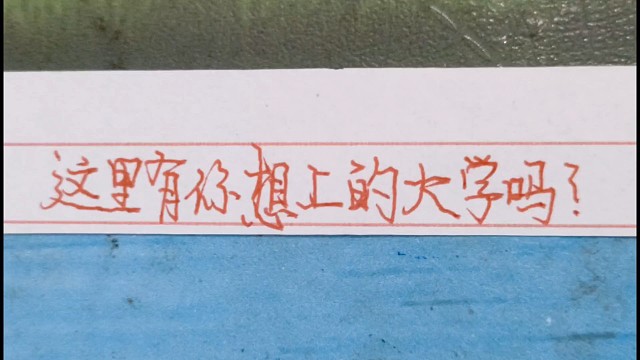 这里有你想上的大学吗?